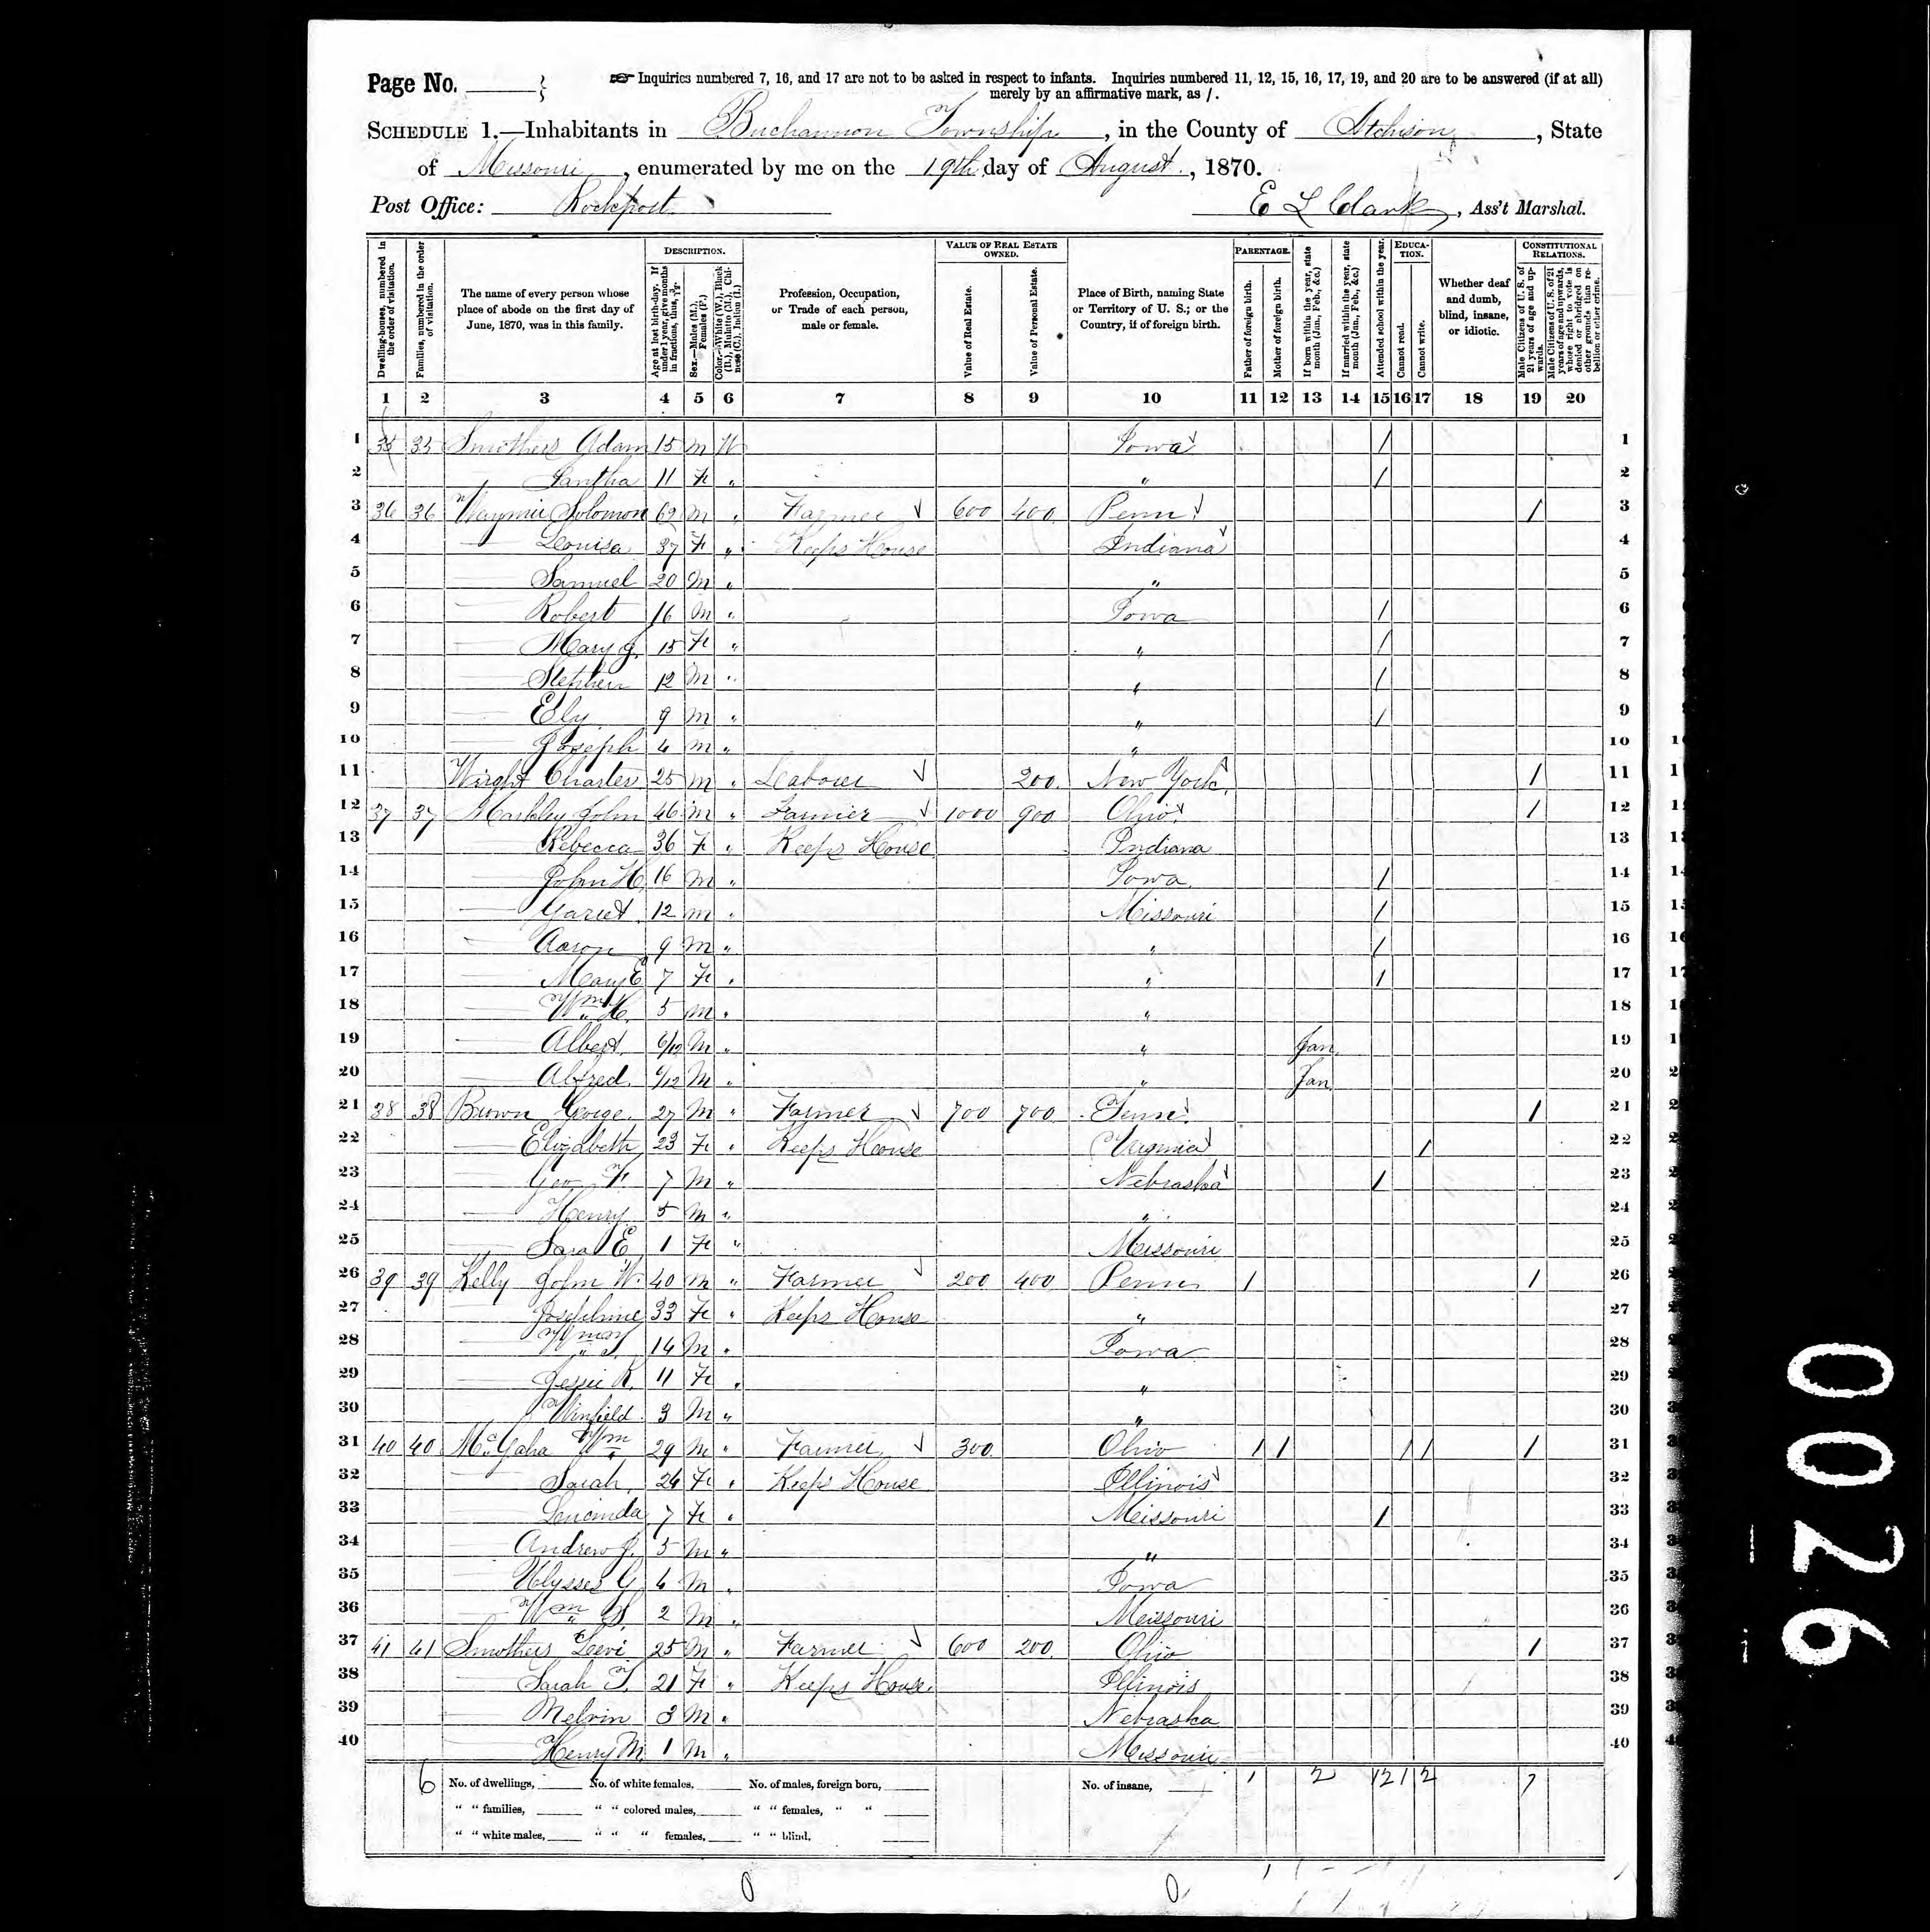 Page No. ____ }
☞ Inquiries numbered 7, 16, and 17 are not to be asked in respect to infants. Inquiries numbered 11, 12, 15, 16, 17, 19, and 20 are to be answered (if at all)
merely by an affirmative mark, as /.
SCHEDULE 1.—Inhabitants in Buchannon Township, in the County of Atchison, State
of Missouri, enumerated by me on the 19th day of August, 1870.
Post Office: Rockport
E L Clark, Ass't Marshal.
Dwelling-houses, numbered in the order of visitation.
Families, numbered in the order of visitation.
The name of every person whose place of abode on the first day of June, 1870, was in this family.
DESCRIPTION.
Age at last birth-day. If under 1 year, give months in fractions, thus, 3/12.
Sex.—Males (M.), Females (F.)
Color.—White (W.), Black (B.), Mulatto (M.), Chinese (C.), Indian (I.)
Profession, Occupation, or Trade of each person, male or female.
VALUE OF REAL ESTATE OWNED.
Value of Real Estate.
Value of Personal Estate.
Place of Birth, naming State or Territory of U. S.; or the Country, if of foreign birth.
PARENTAGE.
Father of foreign birth.
Mother of foreign birth.
If born within the year, state month (Jan., Feb., &c.)
If married within the year, state month (Jan., Feb., &c.)
Attended school within the year.
EDUCATION.
Cannot read.
Cannot write.
Whether deaf and dumb, blind, insane, or idiotic.
CONSTITUTIONAL RELATIONS.
Male Citizens of U. S. of 21 years of age and upwards.
Male Citizens of U. S. of 21 years of age and upwards, whose right to vote is denied or abridged on other grounds than rebellion or other crime.
1 2 3 4 5 6 7 8 9 10 11 12 13 14 15 16 17 18 19 20
1 35 35 Smothers Adam 15 M W Iowa / 1
2 — Santha 11 F " " / 2
3 36 36 Solomon 62 M " Farmer 600 400 Penn / 3
4 — Louisa 37 F " Keeps House Indiana 4
5 — Samuel 20 M " " 5
6 — Robert 16 M " Iowa / 6
7 — Mary J. 15 F " " / 7
8 — Stephen 12 M " " / 8
9 — Ely 9 M " " / 9
10 — Joseph 4 M " " 10
11 Wright Charles 25 M " Labourer 200 New York / 11
12 37 37 Markley John 46 M " Farmer 1000 900 Ohio / 12
13 — Rebecca 36 F " Keeps House Indiana 13
14 — John H. 16 M " Iowa / 14
15 — Garret 12 M " Missouri / 15
16 — Aaron 9 M " " / 16
17 — Mary E 7 F " " / 17
18 — Wm H. 5 M " " 18
19 — Albert 6/12 M " " Jan 19
20 — Alfred 6/12 M " " Jan 20
21 38 38 Brown George 27 M " Farmer 700 700 / 21
22 — Elizabeth 23 F " Keeps House Virginia / 22
23 — Geo F. 7 M " Nebraska / 23
24 — Henry 5 M " " 24
25 — Sarah E 1 F " Missouri 25
26 39 39 Kelly John W. 40 M " Farmer 200 400 Penn / / 26
27 — Josephine 33 F " Keeps House " 27
28 — Wm S. 14 M " Iowa 28
29 — Jessie R. 11 F " " 29
30 — Winfield 3 M " " 30
31 40 40 McGaha Wm 29 M " Farmer 300 Ohio / / / / / 31
32 — Sarah 24 F " Keeps House Illinois 32
33 — Lucinda 7 F " Missouri / 33
34 — Andrew J. 5 M " " 34
35 — Ulysses G 4 M " Iowa 35
36 — Wm S. 2 M " Missouri 36
37 41 41 Smothers Leevi 25 M " Farmer 600 200 Ohio / 37
38 — Sarah T. 21 F " Keeps House Illinois 38
39 — Melvin 3 M " Nebraska 39
40 — Henry M. 1 M " Missouri 40
6 No. of dwellings, ____ No. of white females, ____ No. of males, foreign born, ____ No. of insane, ____ 1 2 12 1 2 7
" " families, ____ " " colored males, ____ " " females, " " ____
" " white males, ____ " " " females, ____ " " blind, ____
0026